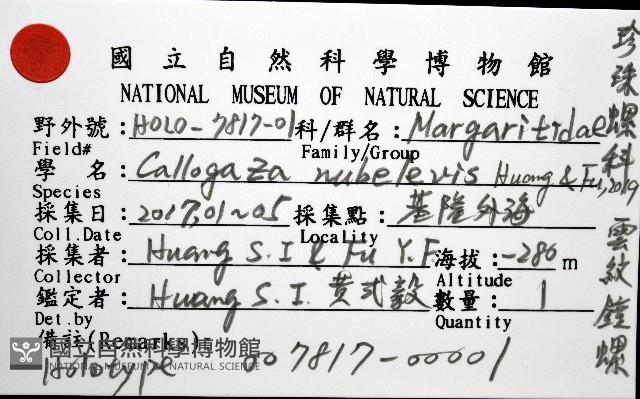 國立自然科學博物館
NATIONAL MUSEUM OF NATURAL SCIENCE
野外號：HOLO-7817-01 科/群名：Margaritidae
Field# Family/Group
學 名：Callogaza nubelevis Huang & Fu, 2019
Species
採集日：2017,01~05 採集點：基隆外海
Coll.Date Locality
採集者：Huang S.I & Fu Y.F. 海拔：-286 m
Collector Altitude
鑑定者：Huang S.I. 黄式毅 數量：1
Det.by Quantity
備註(Remarks)
Holotype 007817-00001
國立自然科學博物館
NATIONAL MUSEUM OF NATURAL SCIENCE
珍珠螺科 雲紋鐘螺